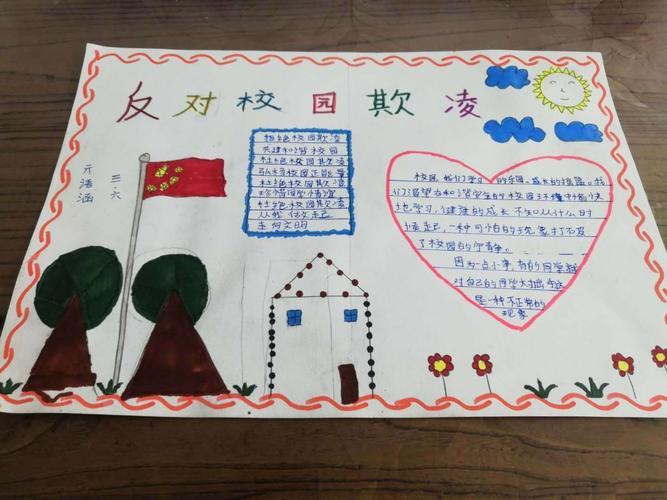 反对校园欺凌
三、六
亓浩涵
拒绝校园欺凌
共建和谐校园
杜绝校园欺凌
弘扬校园正能量
杜绝校园欺凌
珍惜同学情谊
杜绝校园欺凌
从我做起
走向文明
校园,我们学习的乐园、成长的摇篮。我
们渴望在和谐的校园环境中愉快
地学习,健康的成长 不知从什么时
候起,一种可怕的现象打破
了校园的宁静。
因为一点小事,有的同学就
对自己的同学大打出手这
是一种不正常的
现象